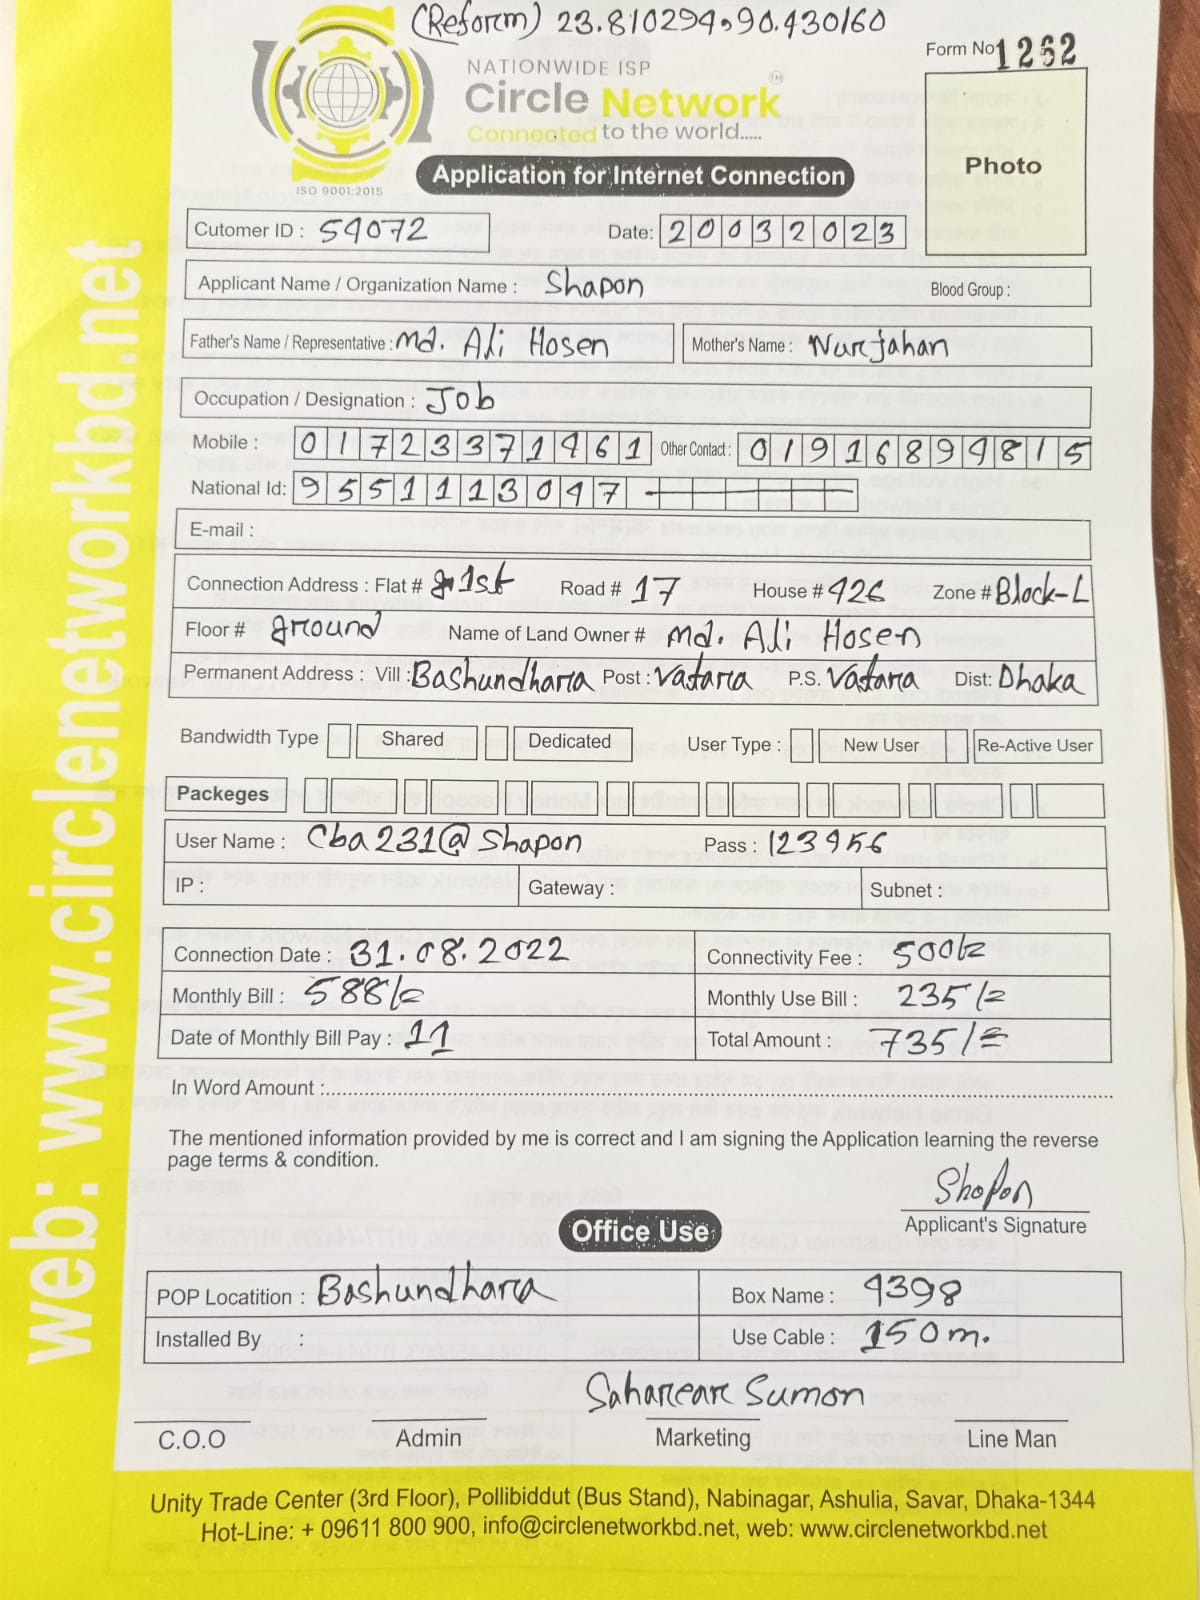 (Reform) 23.810294,90.430160
Form No 1262
NATIONWIDE ISP
Circle Network TM
Connected to the world.....
ISO 9001:2015
Application for Internet Connection
Photo
Cutomer ID : 54072 Date: 20032023
Applicant Name / Organization Name : Shapon Blood Group :
Father's Name / Representative : Md. Ali Hosen Mother's Name : Nurjahan
Occupation / Designation : Job
Mobile : 01723371461 Other Contact : 01916894815
National Id: 9551113047
E-mail :
Connection Address : Flat # 1st Road # 17 House # 426 Zone # Block-L
Floor # ground Name of Land Owner # Md. Ali Hosen
Permanent Address : Vill : Bashundhara Post : Vatara P.S. Vatara Dist: Dhaka
Bandwidth Type Shared Dedicated User Type : New User Re-Active User
Packeges
User Name : Cba231@Shapon Pass : 123456
IP : Gateway : Subnet :
Connection Date : 31.08.2022 Connectivity Fee : 500/=
Monthly Bill : 588/= Monthly Use Bill : 235/=
Date of Monthly Bill Pay : 11 Total Amount : 735/=
In Word Amount :
The mentioned information provided by me is correct and I am signing the Application learning the reverse
page terms & condition.
Shapon
Applicant's Signature
Office Use
POP Locatition : Bashundhara Box Name : 4398
Installed By : Use Cable : 150m.
Sahareare Sumon
C.O.O Admin Marketing Line Man
Unity Trade Center (3rd Floor), Pollibiddut (Bus Stand), Nabinagar, Ashulia, Savar, Dhaka-1344
Hot-Line: + 09611 800 900, info@circlenetworkbd.net, web: www.circlenetworkbd.net
web: www.circlenetworkbd.net